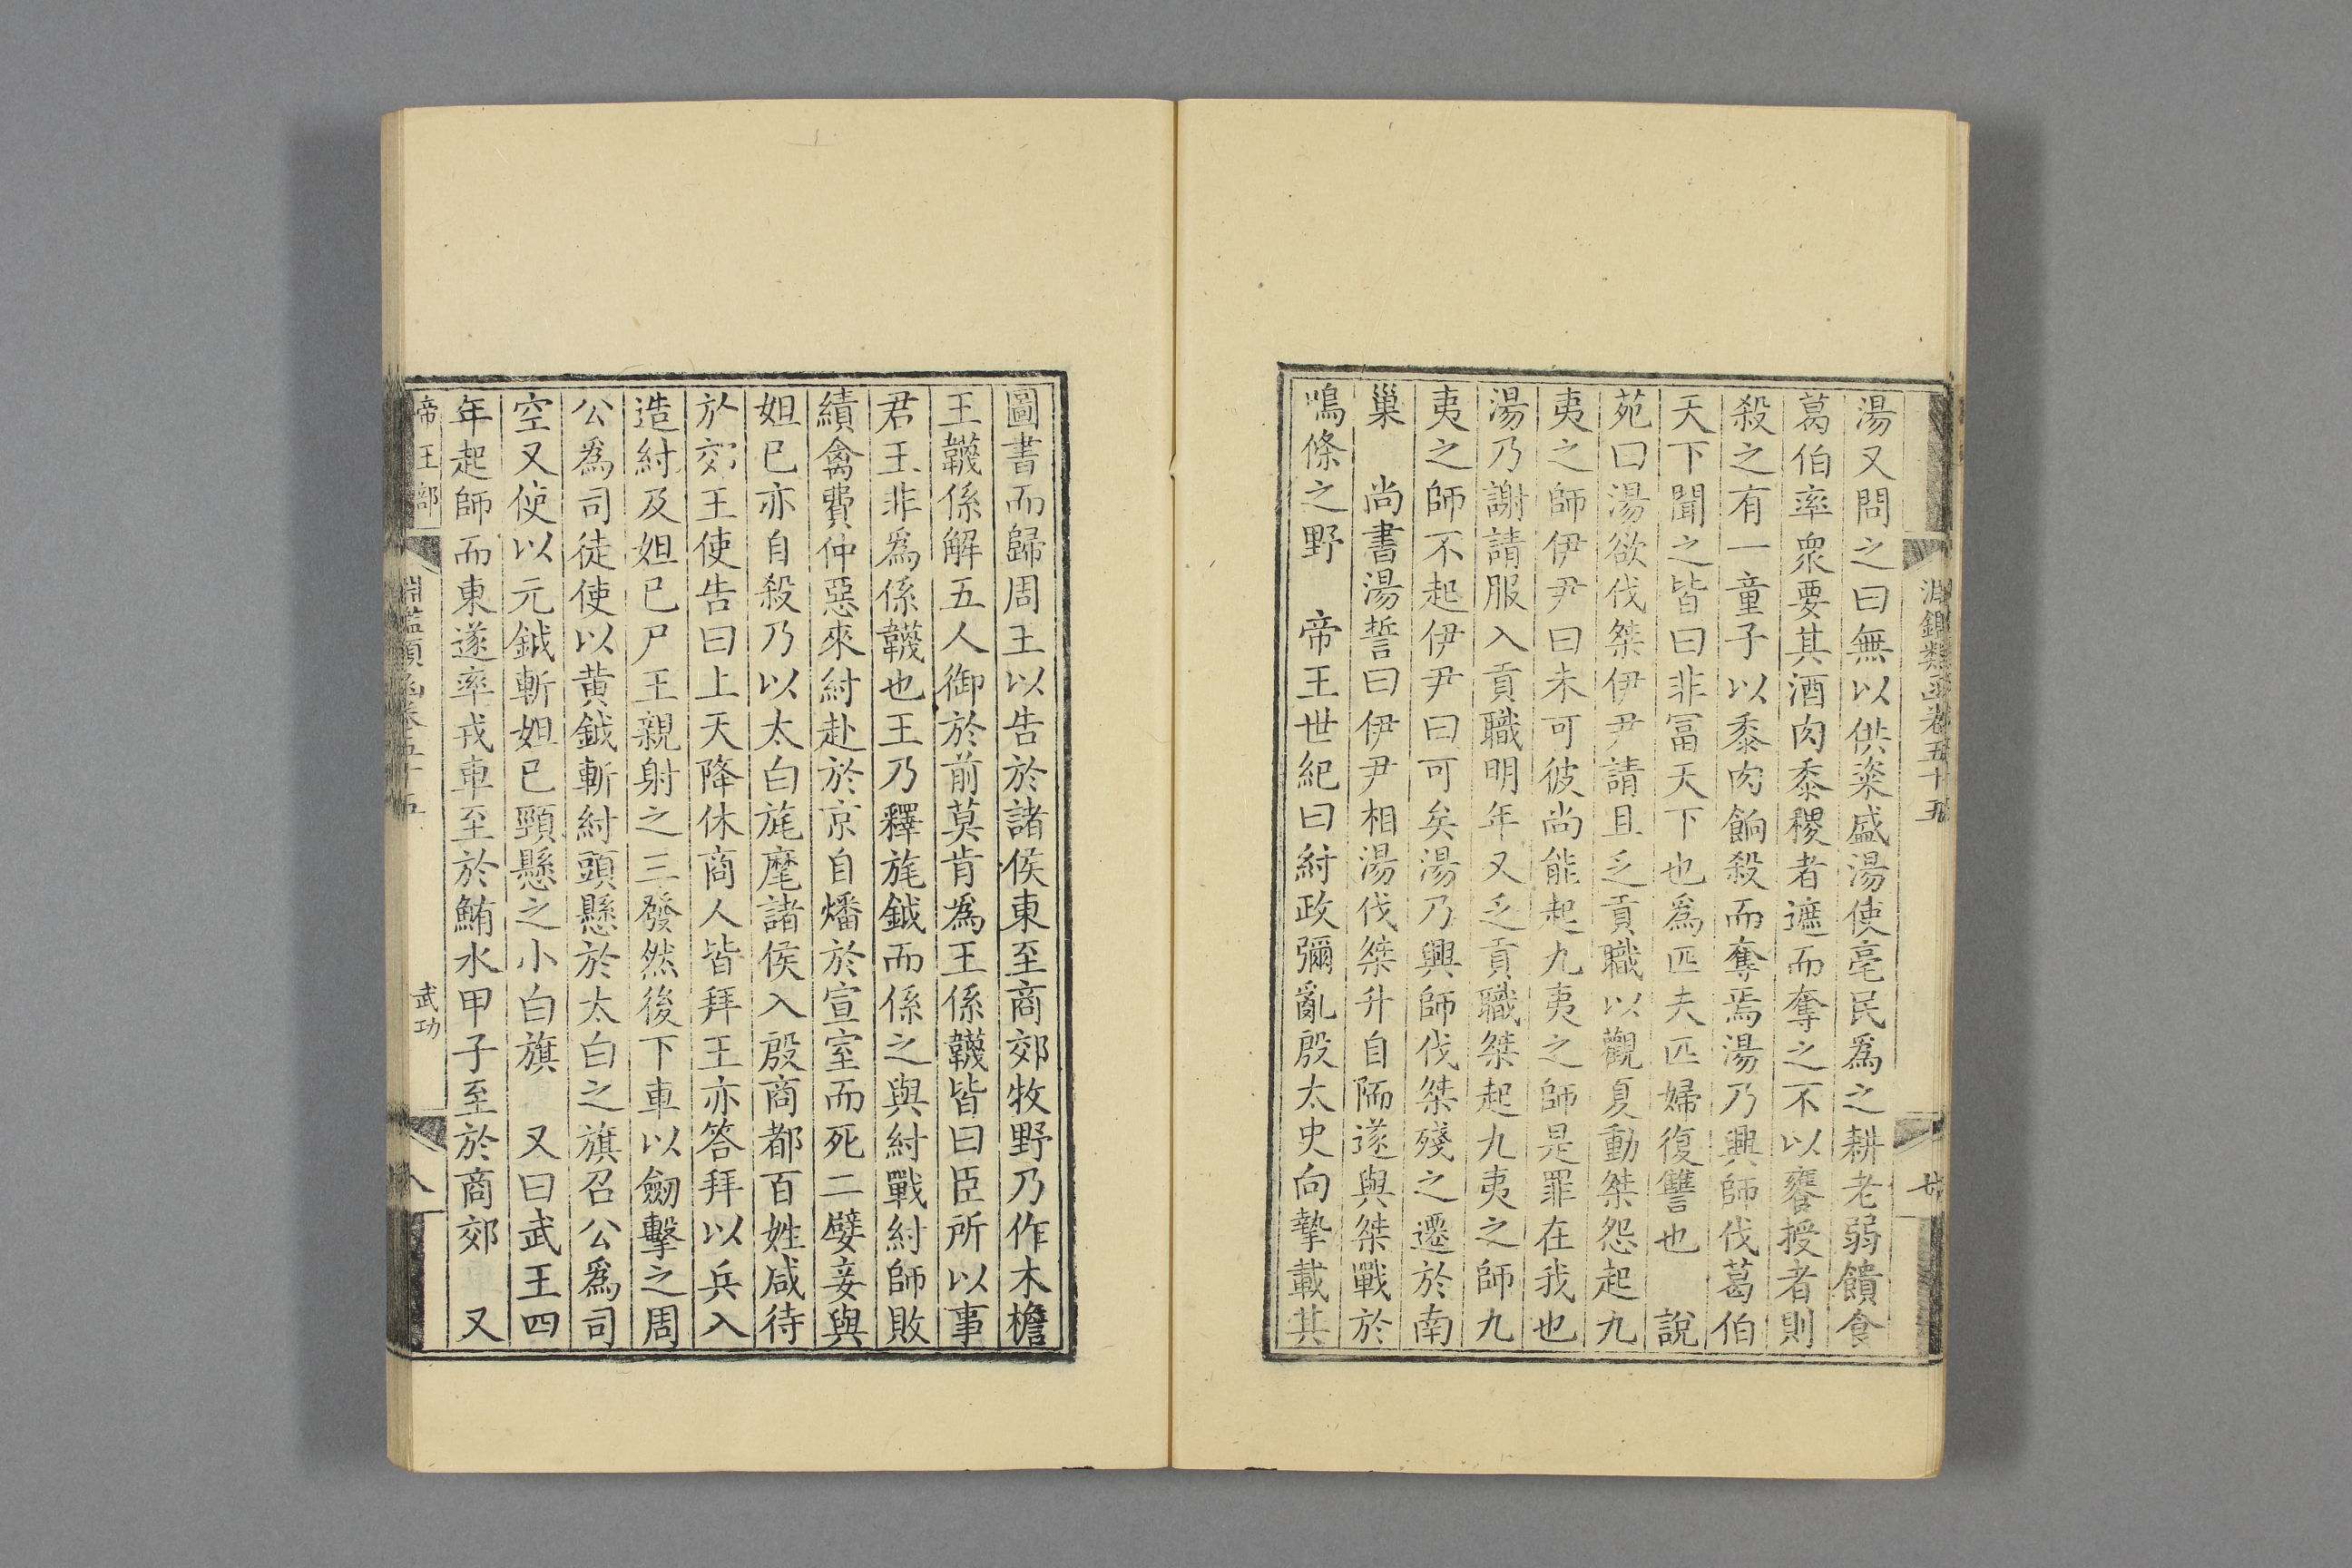 淵鑑類函卷五十五
湯又問之曰無以供粢盛湯使亳民爲之耕老弱饋食
葛伯率衆要其酒肉黍稷者遮而奪之不以饔授者則
殺之有一童子以黍肉餉殺而奪焉湯乃興師伐葛伯
天下聞之皆曰非冨天下也爲匹夫匹婦復讐也　說
苑曰湯欲伐桀伊尹請且乏貢職以觀夏動桀怨起九
夷之師伊尹曰未可彼尚能起九夷之師是罪在我也
湯乃謝請服入貢職明年又乏貢職桀起九夷之師九
夷之師不起伊尹曰可矣湯乃興師伐桀殘之遷於南
巢　尚書湯誓曰伊尹相湯伐桀升自陑遂與桀戰於
鳴條之野　帝王世紀曰紂政彌亂殷太史向摯載其
圖書而歸周王以告於諸侯東至商郊牧野乃作木檐
王韤係解五人御於前莫肯爲王係韤皆曰臣所以事
君王非爲係韤也王乃釋旄鉞而係之與紂戰紂師敗
績禽費仲惡來紂赴於京自燔於宣室而死二嬖妾與
妲己亦自殺乃以太白旄麾諸侯入殷商都百姓咸待
於郊王使告曰上天降休商人皆拜王亦答拜以兵入
造紂及妲己尸王親射之三發然後下車以劒擊之周
公爲司徒使以黄鉞斬紂頭懸於太白之旗召公爲司
空又使以元鉞斬妲己頸懸之小白旗　又曰武王四
年起師而東遂率戎車至於鮪水甲子至於商郊　又
帝王部
淵鑑類函卷五十五
武功
八